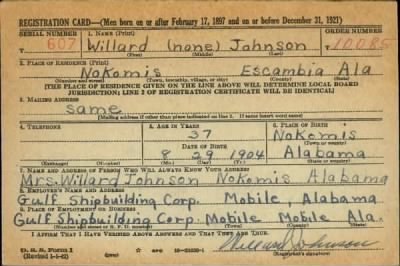 REGISTRATION CARD—(Men born on or after February 17, 1897 and on or before December 31, 1921)
SERIAL NUMBER 1. NAME (Print) ORDER NUMBER
607 Willard (none) Johnson 10085
(First) (Middle) (Last)
2. PLACE OF RESIDENCE (Print)
Nokomis Escambia Ala
(Number and street) (Town, township, village, or city) (County) (State)
[THE PLACE OF RESIDENCE GIVEN ON THE LINE ABOVE WILL DETERMINE LOCAL BOARD
JURISDICTION; LINE 2 OF REGISTRATION CERTIFICATE WILL BE IDENTICAL]
3. MAILING ADDRESS
Same
[Mailing address if other than place indicated on line 2. If same insert word same]
4. TELEPHONE 5. AGE IN YEARS 6. PLACE OF BIRTH
37 Nokomis
DATE OF BIRTH (Town or county)
8 29 1904 Alabama
(Exchange) (Number) (Mo.) (Day) (Yr.) (State or country)
7. NAME AND ADDRESS OF PERSON WHO WILL ALWAYS KNOW YOUR ADDRESS
Mrs. Willard Johnson Nokomis Alabama
8. EMPLOYER'S NAME AND ADDRESS
Gulf Shipbuilding Corp. Mobile, Alabama
9. PLACE OF EMPLOYMENT OR BUSINESS
Gulf Shipbuilding Corp. Mobile Mobile Ala.
(Number and street or R. F. D. number) (Town) (County) (State)
I AFFIRM THAT I HAVE VERIFIED ABOVE ANSWERS AND THAT THEY ARE TRUE.
D. S. S. Form 1
(Revised 1-1-42) (over) Willard Johnson
(Registrant's signature)